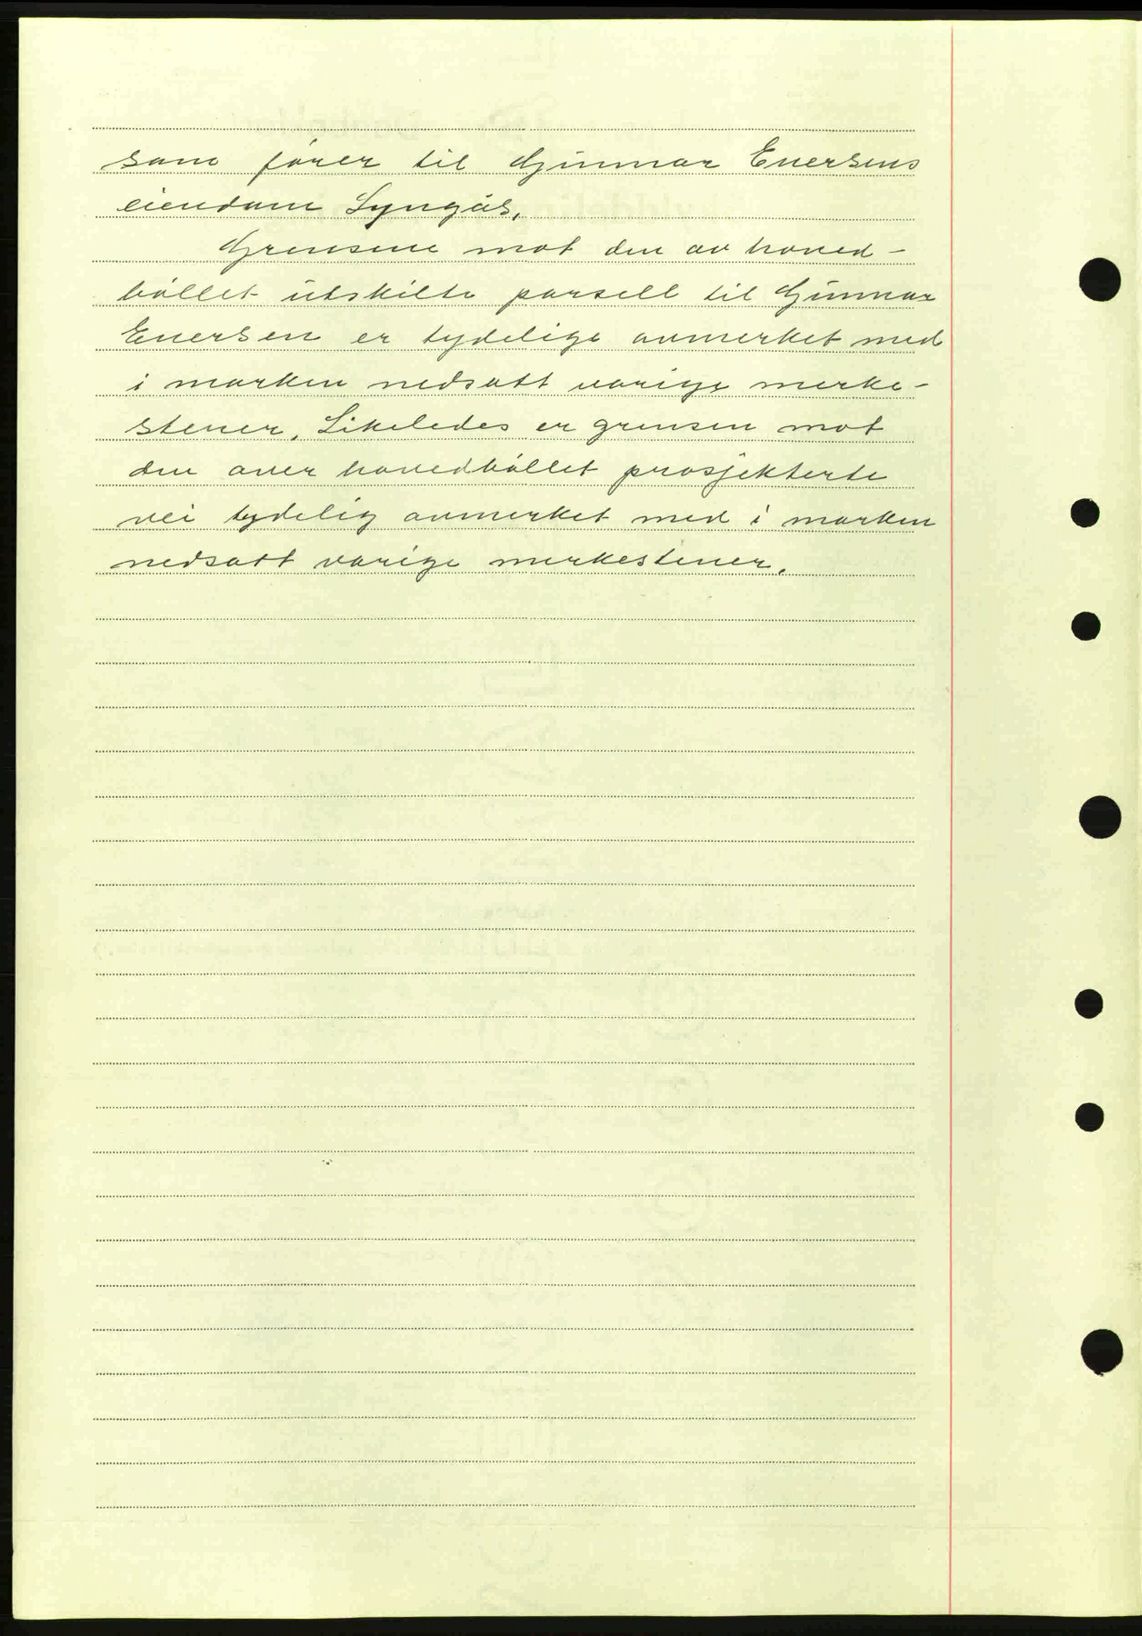 som fører til Gunnar Enersens
eiendom Lyngås.
Grensene mot den av hoved-
bøllet utskilte parsell til Gunnar
Enersen er tydelige avmerket med
i marken nedsatt varige merke-
stener. Likeledes er grensen mot
den over hovedbøllet prosjekterte
vei tydelig avmerket med i marken
nedsatt varige merkestener.